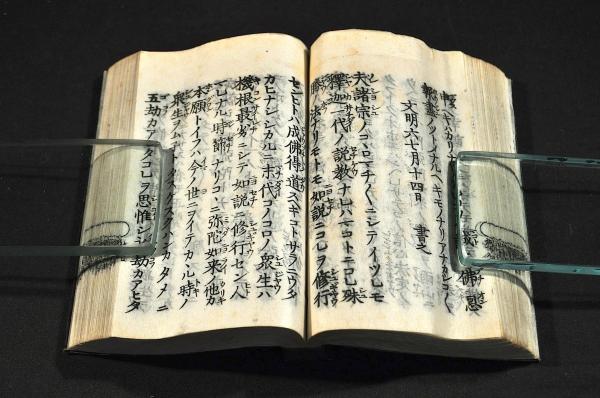 佛恩
報盡ツイノルヘキモノナリアナカシコ〱
文明六七月十四日 書之
夫諸宗ノコヽロマチ〱ニシテイツレモ
釋迦一代ノ説教ナレハマコトニコレ殊
勝ノ法ナリモトモ如説ニコレヲ修行
センヒトハ成佛得道スヘキコトサラニウタ
カヒナシシカルニ末代コノコロノ衆生ハ
機根最劣ニシテ如説ニ修行セン人
マレナル時節ナリコヽニ弥陀如来ノ他力
本願トイフハ今ノ世ニヲイテカヽル時ノ
衆生ヲムネトタスケスクハンカタメニ
五劫カアヒタコレヲ思惟シ劫カアヒタ